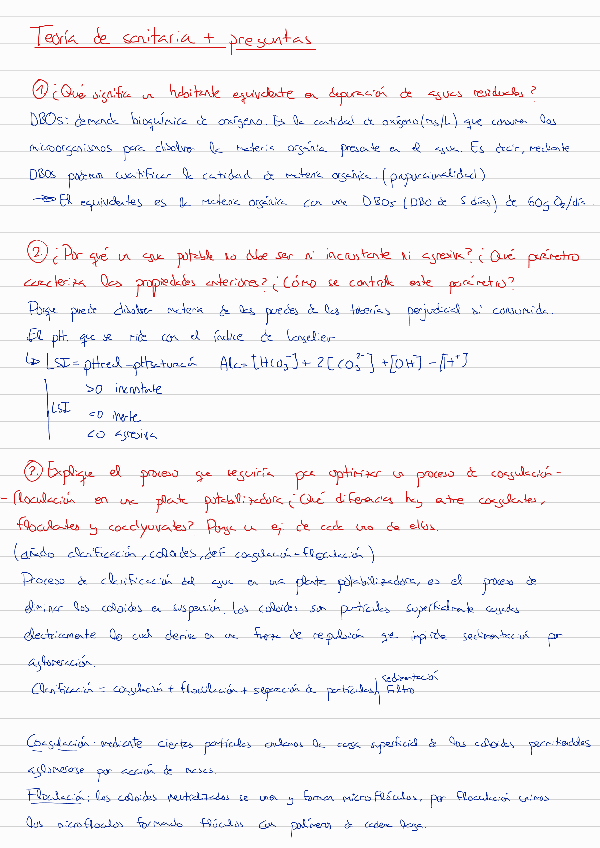 Teoría de sanitaria + preguntas
① ¿Qué significa un habitante equivalente en depuración de aguas residuales?
DBO5: demanda bioquímica de oxígeno. Es la cantidad de oxígeno (mg/L) que consumen los
microorganismos para disolver la materia orgánica presente en el agua. Es decir, mediante
DBO5 podemos cuantificar la cantidad de materia orgánica. (proporcionalidad)
→ El equivalentes es la materia orgánica con una DBO5 (DBO de 5 días) de 60g O2/día.
② ¿Por qué un agua potable no debe ser ni incrustante ni agresiva? ¿Qué parámetro
caracteriza las propiedades anteriores? ¿Cómo se controla este parámetro?
Porque puede disolver materia de las paredes de las tuberías perjudicial si consumida.
El pH. que se mide con el índice de Langelier
↳ LSI = pHreal - pHsaturación Alc = [HCO3-] + 2[CO3 2-] + [OH-] - [H+]
>0 incrustate
LSI =0 inerte
<0 agresiva
③ Explique el proceso que seguiría para optimizar un proceso de coagulación-
-floculación en una planta potabilizadora ¿Qué diferencias hay entre coagulantes,
floculantes y coadyuvates? Ponga un ej de cada uno de ellos.
(añado clarificación, coloides, def coagulación-floculación)
Proceso de clarificación del agua en una planta potabilizadora, es el proceso de
eliminar los coloides en suspensión. Los coloides son partículas superficialmente cargadas
electricamente lo cual deriva en una fuerza de repulsión que impide sedimentación por
aglomeración.
Clarificación = coagulación + floculación + separación de partículas | sedimentación
Filtro
Coagulación: mediante ciertas partículas anulamos la carga superficial de los coloides permitiendoles
aglomerarse por acción de masas.
Floculación: los coloides neutralizados se unen y forman microflóculos, por floculación unimos
los microfloculos formando flóculos con polímeros de cadena larga.